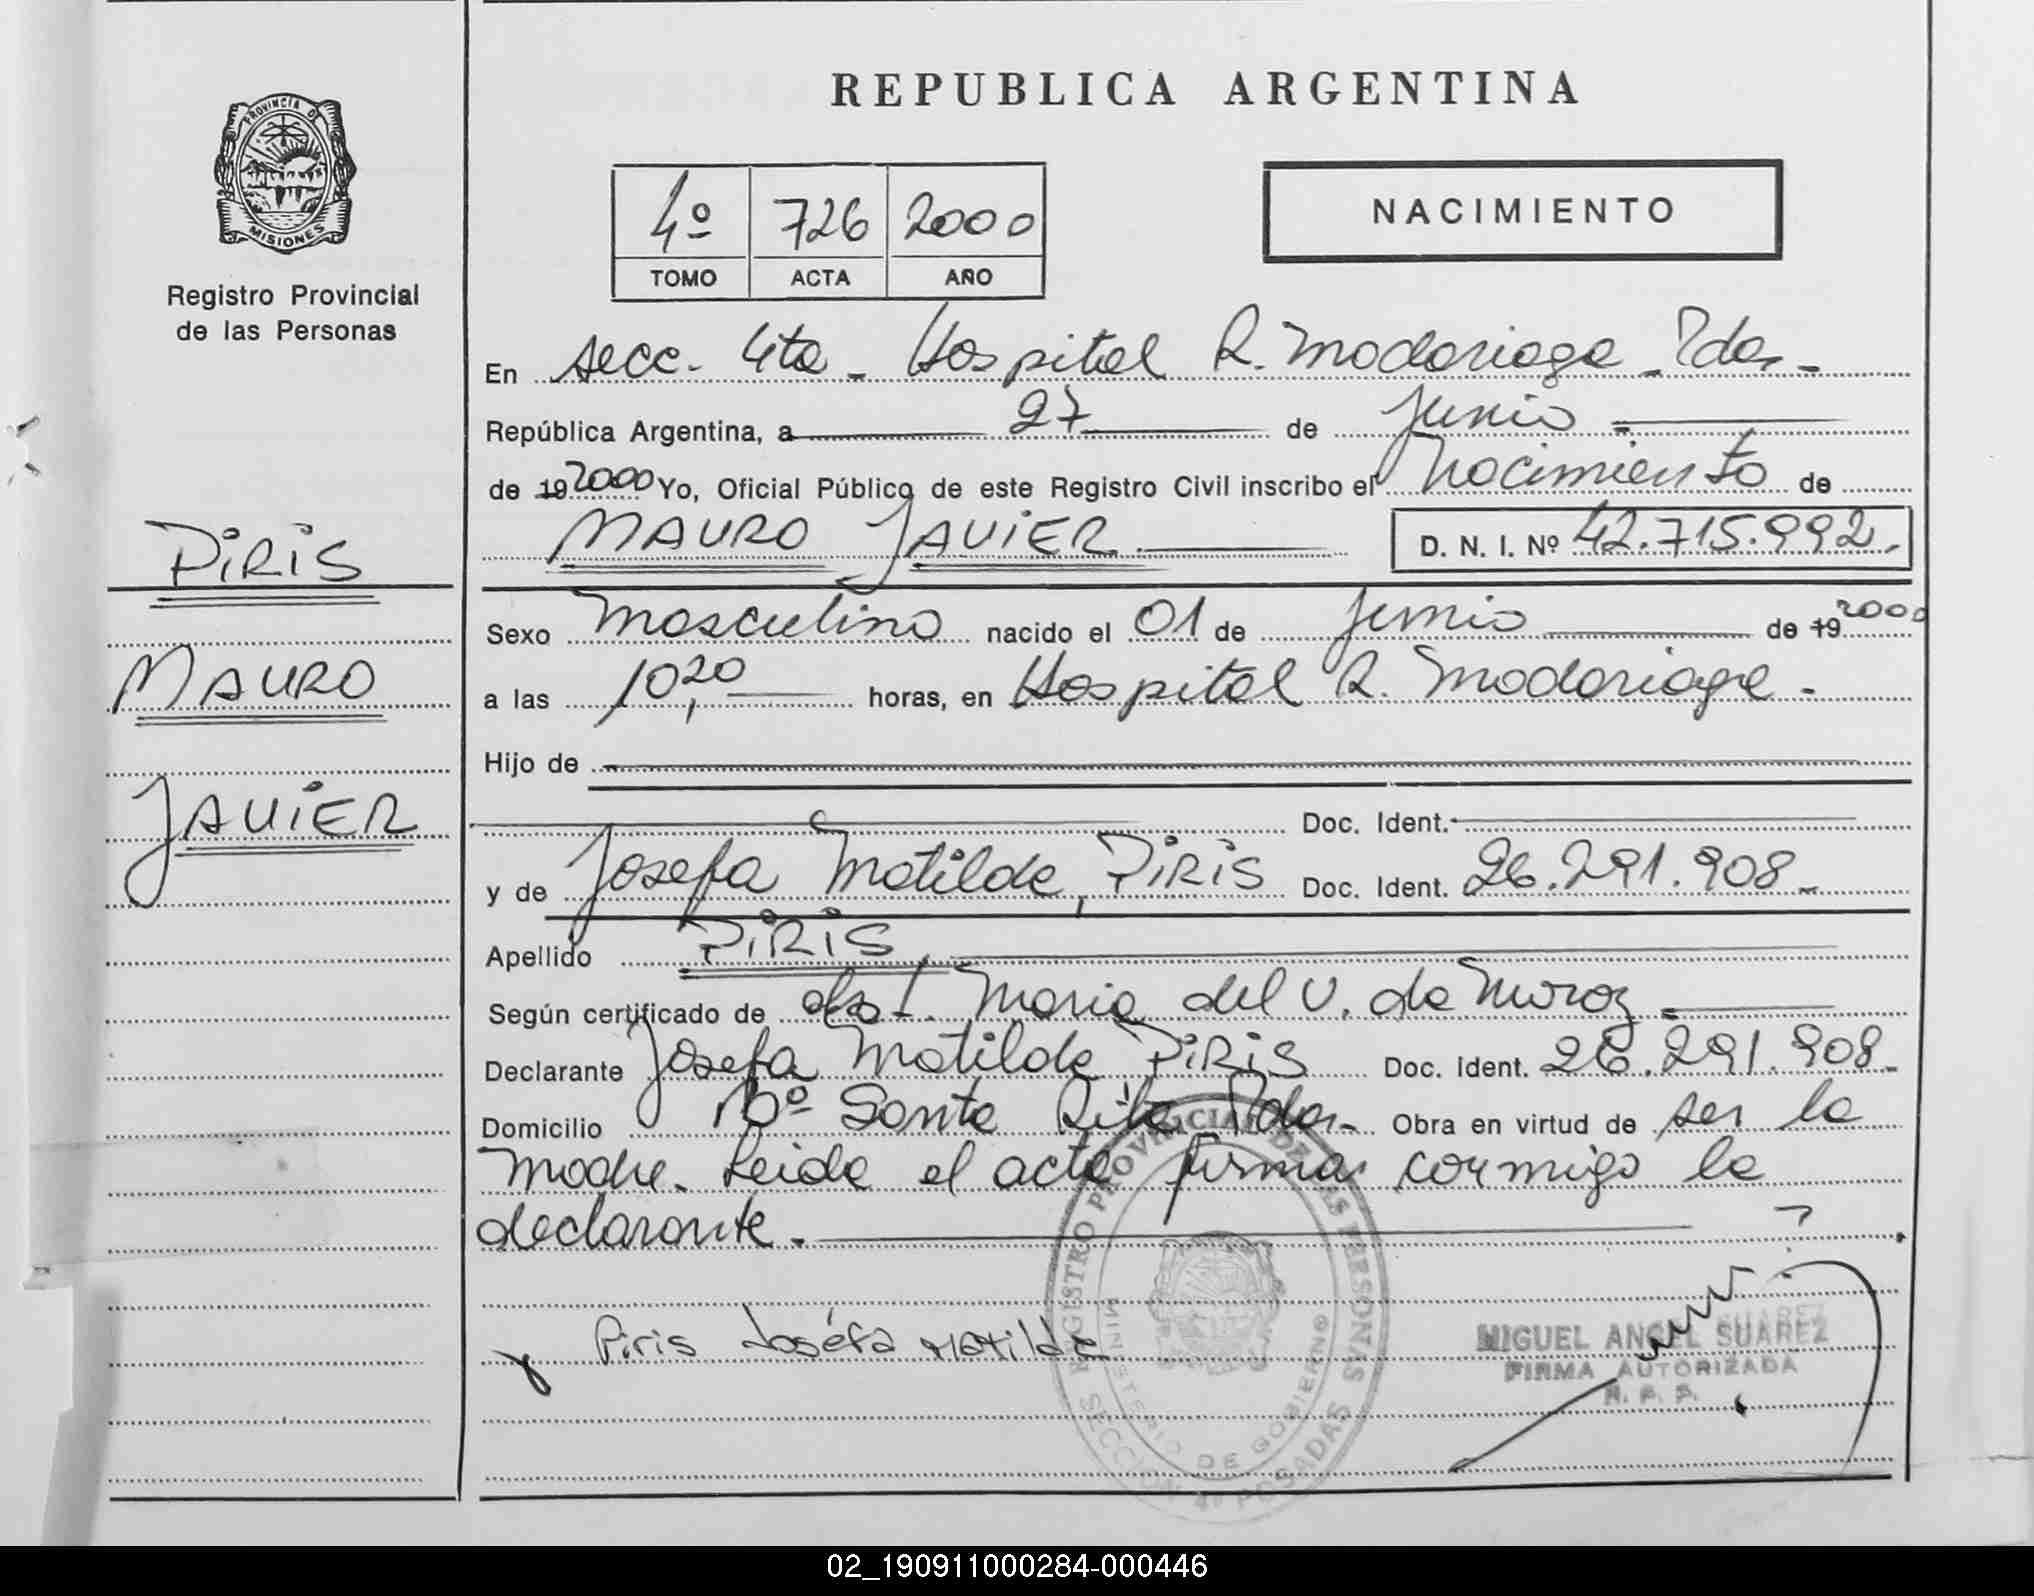 PROVINCIA DE
MISIONES
Registro Provincial
de las Personas
PIRIS
MAURO
JAVIER
REPUBLICA ARGENTINA
4º 726 2000
TOMO ACTA AÑO
NACIMIENTO
En secc. 4ta - Hospital R. Madariaga - Pdas -
República Argentina, a 27 de Junio
de 19 2000 Yo, Oficial Público de este Registro Civil inscribo el Nacimiento de
MAURO JAVIER D. N. I. Nº 42.715.992.
Sexo Masculino nacido el 01 de Junio de 19 2000
a las 10,20 horas, en Hospital R. Madariaga.
Hijo de
Doc. Ident.
y de Josefa Matilde, PIRIS Doc. Ident. 26.291.908
Apellido PIRIS
Según certificado de Maria del V. de
Declarante Josefa Matilde PIRIS Doc. Ident. 26.291.908
Domicilio Bº Santa Rita Pdas - Obra en virtud de ser la
madre. Leida el acta firma conmigo la
declarante.
Piris Joséfa Matilde
MIGUEL ANGEL SUAREZ
FIRMA AUTORIZADA
R. P. P.
REGISTRO PROVINCIAL DE LAS PERSONAS
MINISTERIO DE GOBIERNO
SECCION 4ª POSADAS
02_190911000284-000446